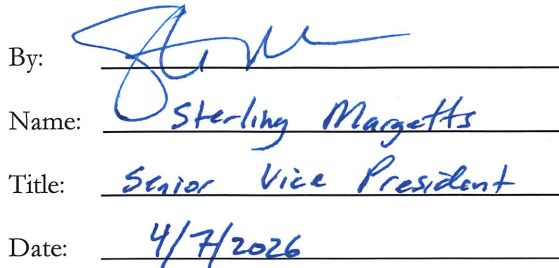 By:
Name: Sterling Margetts
Title: Senior Vice President
Date: 4/7/2026